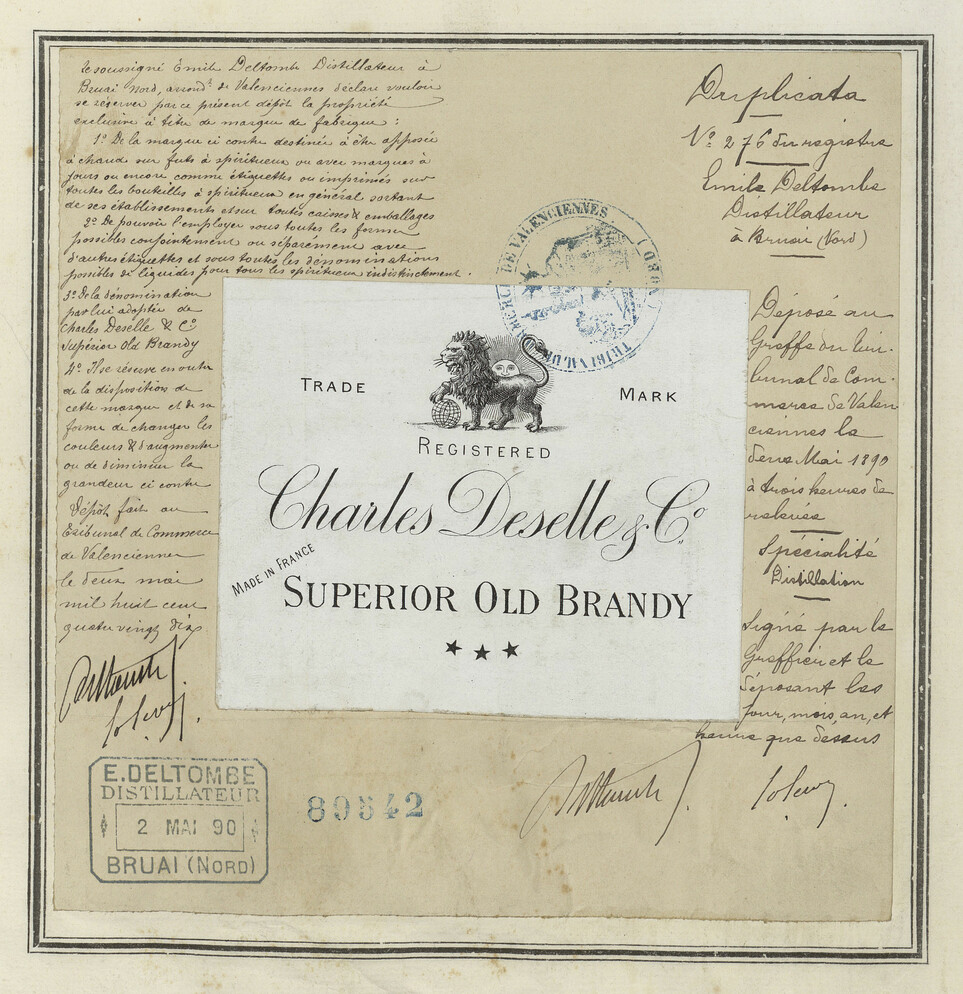 Je soussigné Emile Deltombe Distillateur à
Bruai Nord, arrondt de Valenciennes déclare vouloir
se réserver par ce présent dépôt la propriété
exclusive à titre de marque de fabrique :
1º De la marque ci contre destinée à être apposée
à chaud sur futs à spiritueux ou avec marques à
jours ou encore comme étiquettes ou imprimés sur
toutes les bouteilles à spiritueux en général sortant
de ses établissements et sur toutes caisses & emballages
2º De pouvoir l'employer sous toutes les formes
possibles conjointement ou séparément avec
d'autres étiquettes et sous toutes les dénominations
possibles de liquides pour tous les spiritueux indistinctement.
3º De la dénomination
par lui adoptée de
Charles Deselle & Cº
Supérior Old Brandy
4º Il se réserve en outre
de la disposition de
cette marque et de sa
forme de changer les
couleurs & d'augmenter
ou de diminuer la
grandeur ci contre
Dépôt fait au
Tribunal de Commerce
de Valenciennes
le deux mai
mil huit cent
quatre vingt dix
Duplicata
Nº 276 du registre
Emile Deltombe
Distillateur
à Bruai (Nord)
Déposé au
Greffe du Tri-
bunal de Com-
merce de Valen-
ciennes le
deux Mai 1890
à trois heures de
relevée
Spécialité
Distillation
Signé par le
Greffier et le
déposant les
jour, mois, an, et
heure que dessus
TRIBUNAL DE COMMERCE DE VALENCIENNES (NORD)
TRADE MARK
REGISTERED
Charles Deselle & Cº
MADE IN FRANCE
SUPERIOR OLD BRANDY
E. DELTOMBE
DISTILLATEUR
2 MAI 90
BRUAI (NORD)
80542